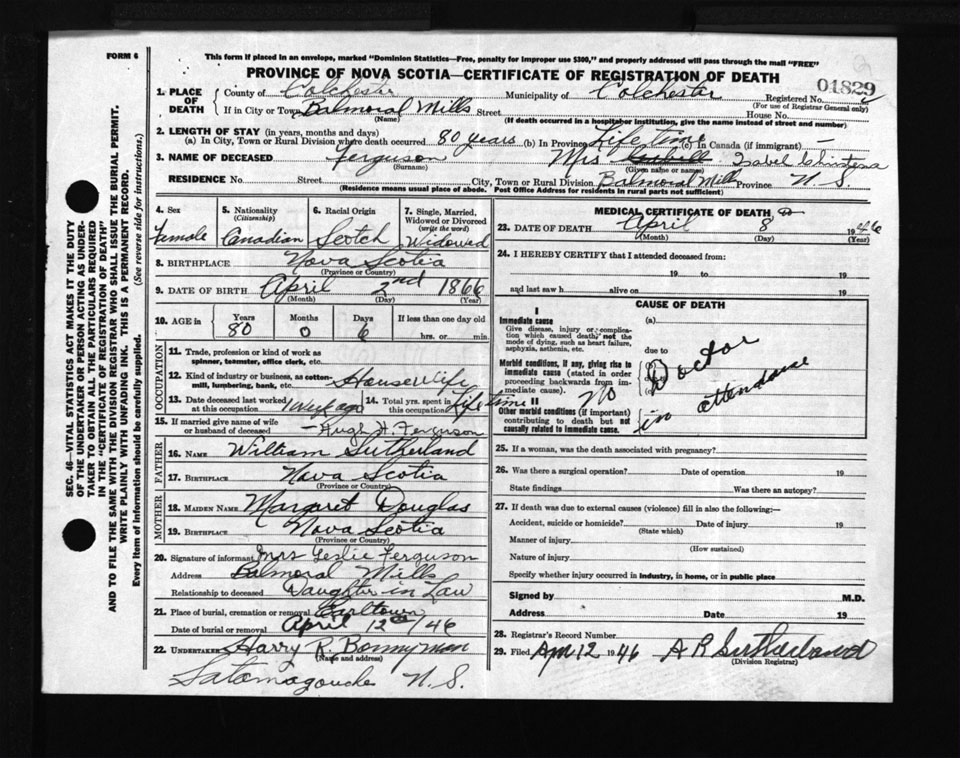 FORM 6
This form if placed in an envelope, marked "Dominion Statistics—Free, penalty for improper use $300," and properly addressed will pass through the mail "FREE"
PROVINCE OF NOVA SCOTIA—CERTIFICATE OF REGISTRATION OF DEATH
04829
1. PLACE OF DEATH
County of Colchester Municipality of Colchester Registered No.
(For use of Registrar General only)
If in City or Town Balmoral Mills Street House No.
(Name) (If death occurred in a hospital or institution, give the name instead of street and number)
2. LENGTH OF STAY (in years, months and days)
(a) In City, Town or Rural Division where death occurred 80 years (b) In Province Life time (c) In Canada (if immigrant) —
3. NAME OF DECEASED Ferguson Mrs Isabel
(Surname) (Given name or names)
RESIDENCE No. Street City, Town or Rural Division Balmoral Mills Province N. S.
(Residence means usual place of abode. Post Office Address for residents in rural parts not sufficient)
4. Sex
Female
5. Nationality
(Citizenship)
Canadian
6. Racial Origin
Scotch
7. Single, Married, Widowed or Divorced
(write the word)
Widowed
8. BIRTHPLACE Nova Scotia
(Province or Country)
9. DATE OF BIRTH April 2nd 1866
(Month) (Day) (Year)
10. AGE in Years Months Days If less than one day old
80 0 6 hrs. or min.
OCCUPATION
11. Trade, profession or kind of work as
spinner, teamster, office clerk, etc.
12. Kind of industry or business, as cotton-
mill, lumbering, bank, etc. Housewife
13. Date deceased last worked
at this occupation 1 week ago
14. Total yrs. spent in
this occupation Life time
15. If married give name of wife
or husband of deceased — Hugh H. Ferguson
FATHER
16. NAME William Sutherland
17. BIRTHPLACE Nova Scotia
(Province or Country)
MOTHER
18. MAIDEN NAME Margaret Douglas
19. BIRTHPLACE Nova Scotia
(Province or Country)
20. Signature of informant Mrs Leslie Ferguson
Address Balmoral Mills
Relationship to deceased Daughter in Law
21. Place of burial, cremation or removal Earltown
Date of burial or removal April 12th/46
22. UNDERTAKER Harry R. Bonnyman
(Name and address)
Tatamagouche N. S.
MEDICAL CERTIFICATE OF DEATH
23. DATE OF DEATH April 8 1946
(Month) (Day) (Year)
24. I HEREBY CERTIFY that I attended deceased from:
19 to 19
and last saw h alive on 19
CAUSE OF DEATH
I
Immediate cause (a)
Give disease, injury or complica-
tion which caused death, not the
mode of dying, such as heart failure,
asphyxia, asthenia, etc.
due to
Morbid conditions, if any, giving rise to
immediate cause (stated in order
proceeding backwards from im-
mediate cause).
(b)
(c)
No Doctor
in attendance
II
Other morbid conditions (if important)
contributing to death but not
causally related to immediate cause.
25. If a woman, was the death associated with pregnancy?
26. Was there a surgical operation? Date of operation 19
State findings Was there an autopsy?
27. If death was due to external causes (violence) fill in also the following:—
Accident, suicide or homicide? Date of injury 19
(State which)
Manner of injury
(How sustained)
Nature of injury
Specify whether injury occurred in industry, in home, or in public place
Signed by M.D.
Address Date 19
28. Registrar's Record Number
29. Filed Apr 12 1946 A R Sutherland
(Division Registrar)
SEC. 46—VITAL STATISTICS ACT MAKES IT THE DUTY
OF THE UNDERTAKER OR PERSON ACTING AS UNDER-
TAKER TO OBTAIN ALL THE PARTICULARS REQUIRED
IN THE "CERTIFICATE OF REGISTRATION OF DEATH"
AND TO FILE THE SAME WITH THE DIVISION REGISTRAR WHO SHALL ISSUE THE BURIAL PERMIT.
WRITE PLAINLY WITH UNFADING INK. THIS IS A PERMANENT RECORD.
Every item of information should be carefully supplied. (See reverse side for instructions.)